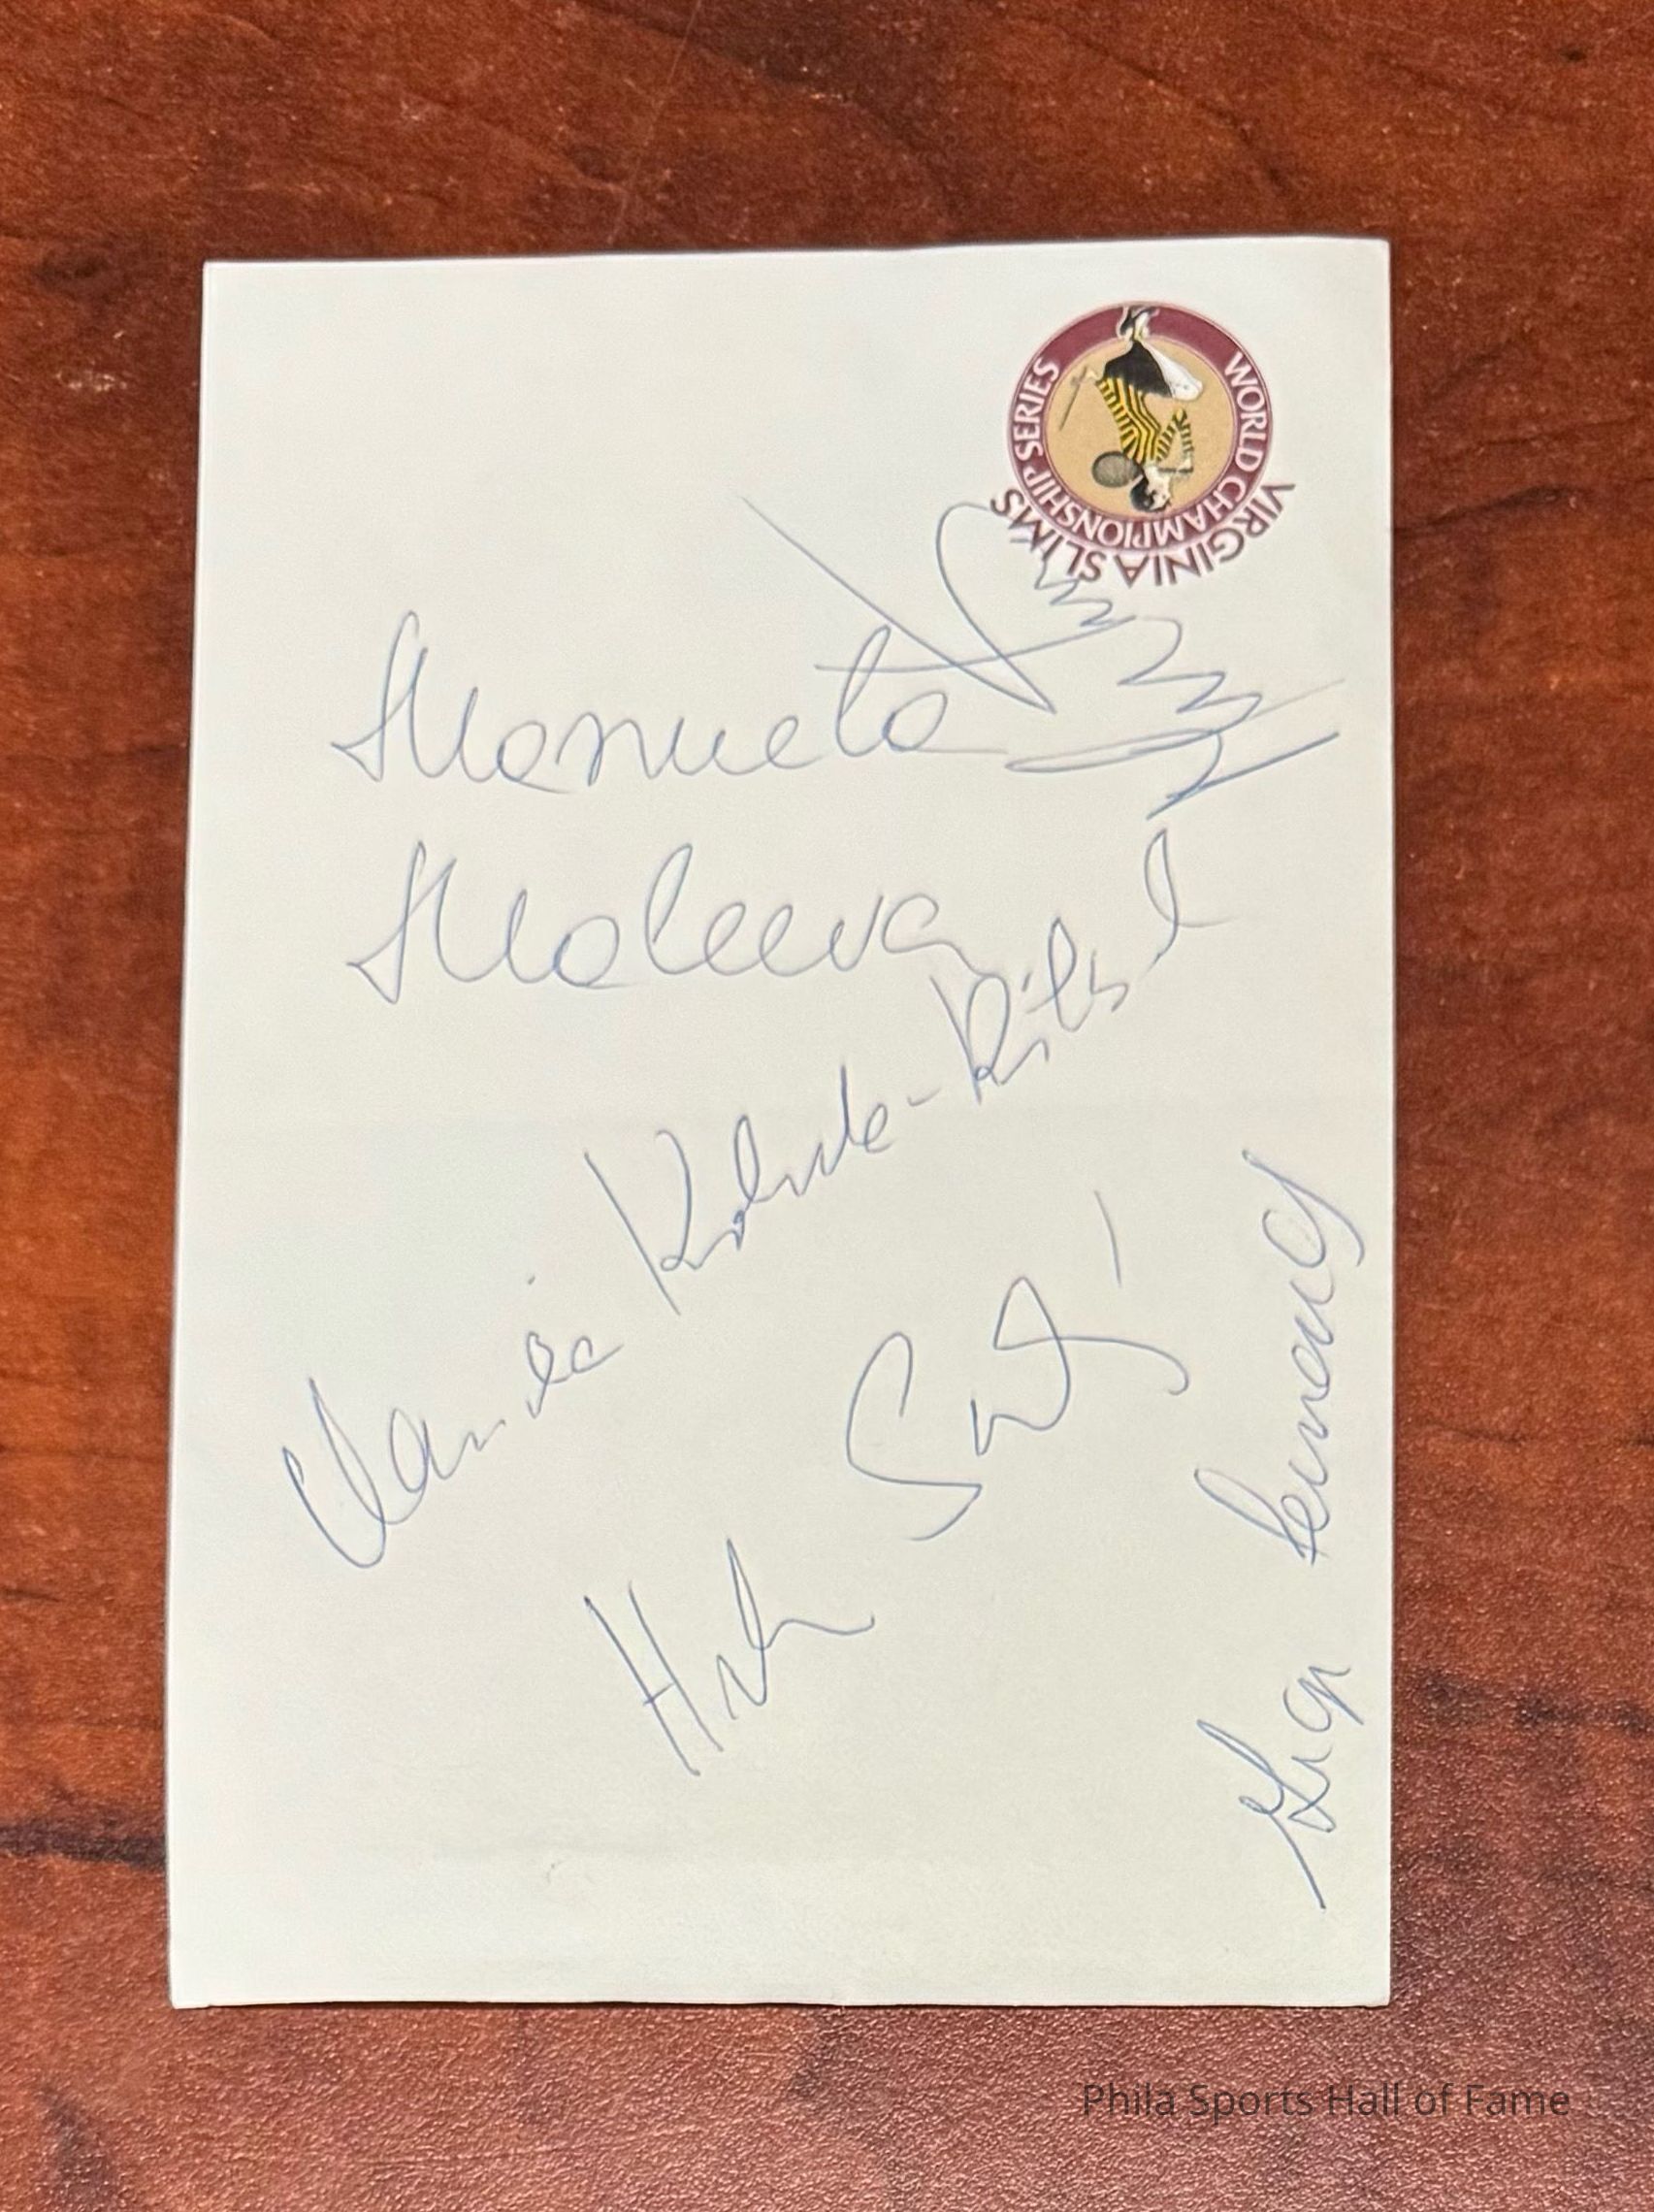 VIRGINIA SLIMS
WORLD CHAMPIONSHIP SERIES
Manuela
Maleeva
Claudia Kohde-Kilsch
Helena Suková
Gigi Fernandez
Phila Sports Hall of Fame